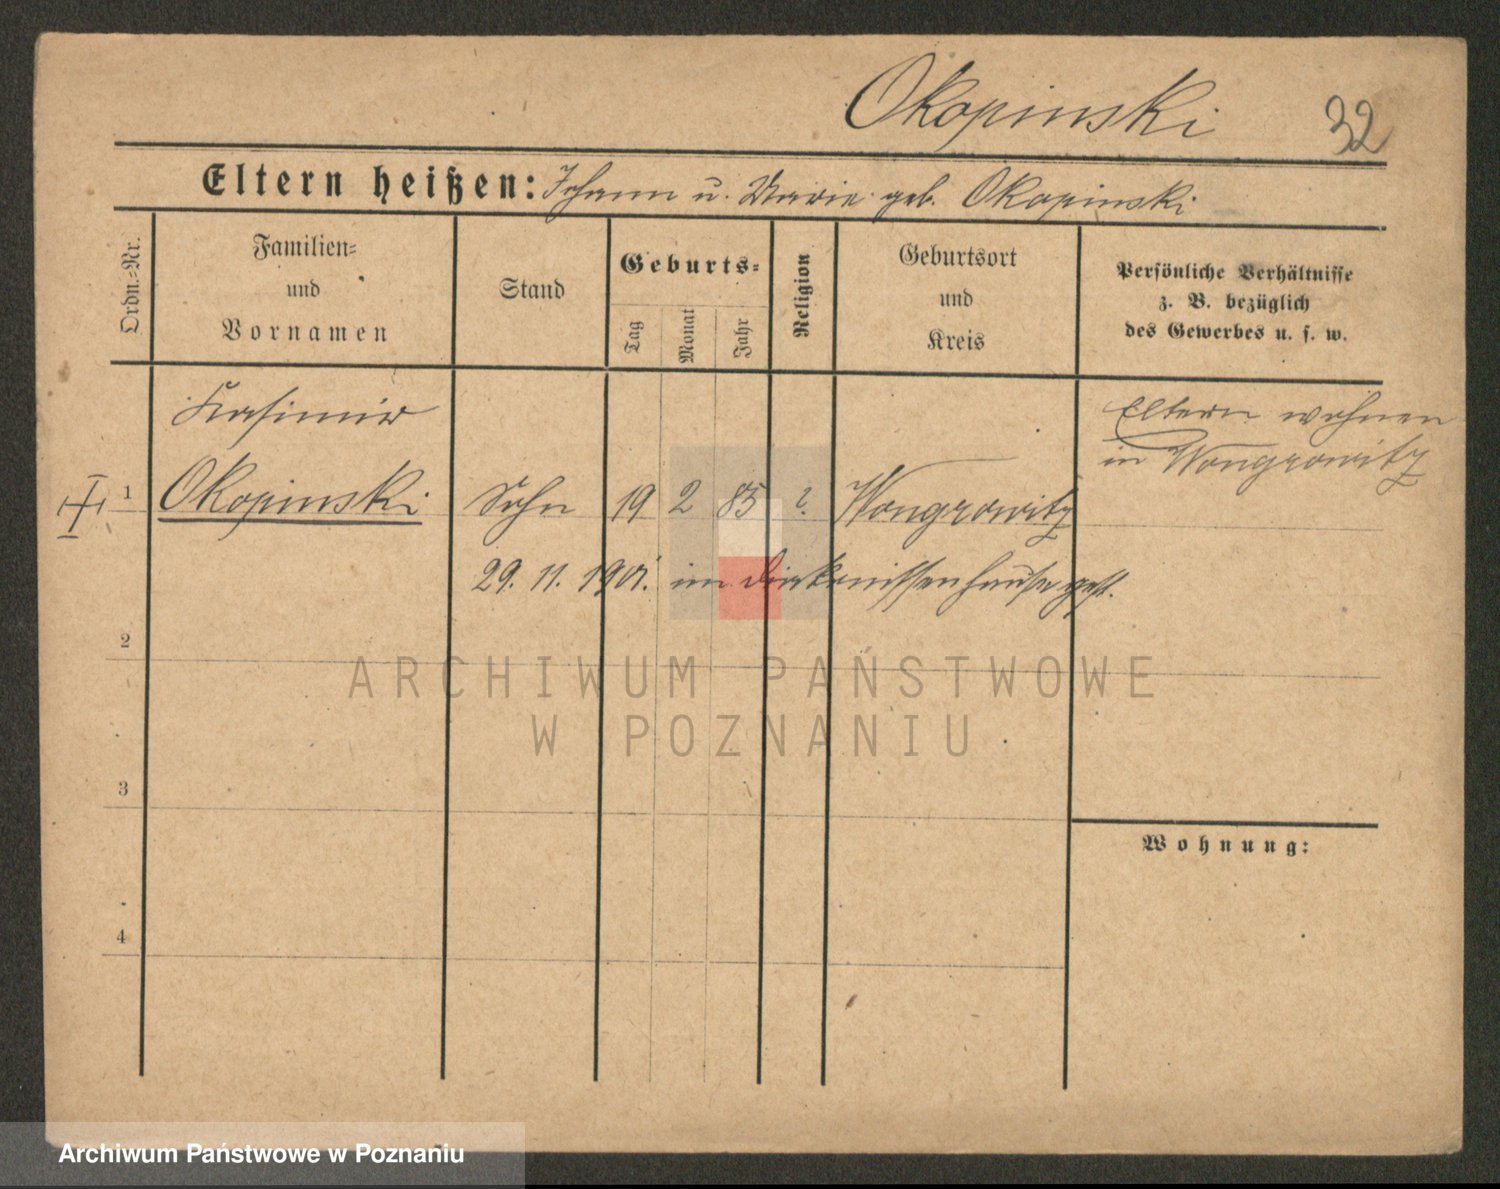 Okopinski 32
Eltern heißen: Johann u. Marie geb. Okopinski
Ordn.-Nr.
Familien-
und
Vornamen
Stand
Geburts-
Tag
Monat
Jahr
Religion
Geburtsort
und
Kreis
Persönliche Verhältnisse
z. B. bezüglich
des Gewerbes u. s. w.
Kasimir
Eltern wohnen
in Wongrowitz
1 Okopinski Sohn 19 2 85 ? Wongrowitz
29. 11. 1901. im Diakonissenhause gest.
2
ARCHIWUM PAŃSTWOWE
W POZNANIU
3
Wohnung:
4
Archiwum Państwowe w Poznaniu